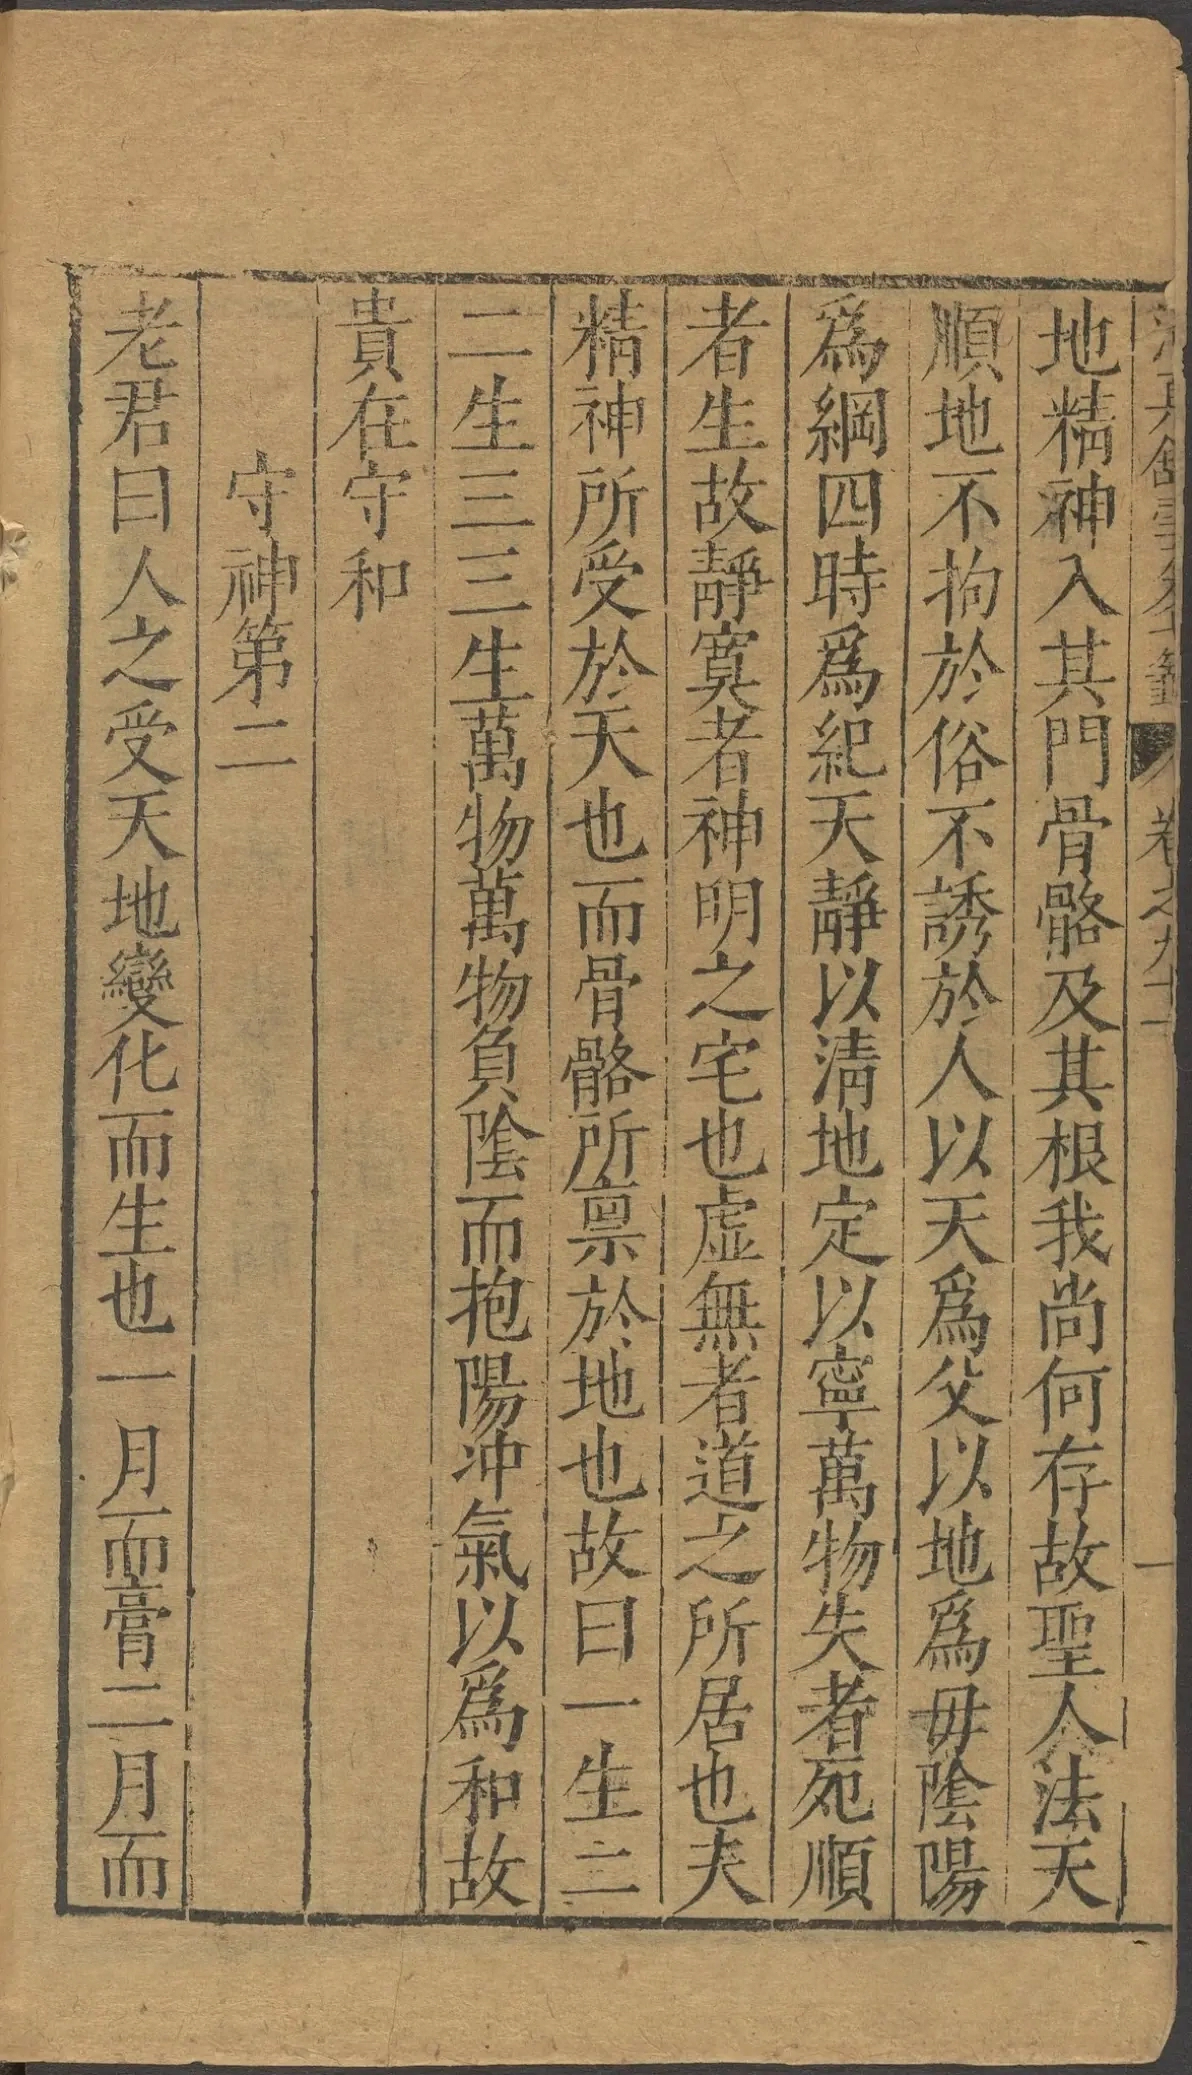 卷之九十一
一
地精神入其門骨骼及其根我尚何存故聖人法天
順地不拘於俗不誘於人以天爲父以地爲毋陰陽
爲綱四時爲紀天靜以淸地定以寧萬物失者死順
者生故靜寞者神明之宅也虛無者道之所居也夫
精神所受於天也而骨骼所禀於地也故曰一生二
二生三三生萬物萬物負陰而抱陽冲氣以爲和故
貴在守和
守神第二
老君曰人之受天地變化而生也一月而膏二月而